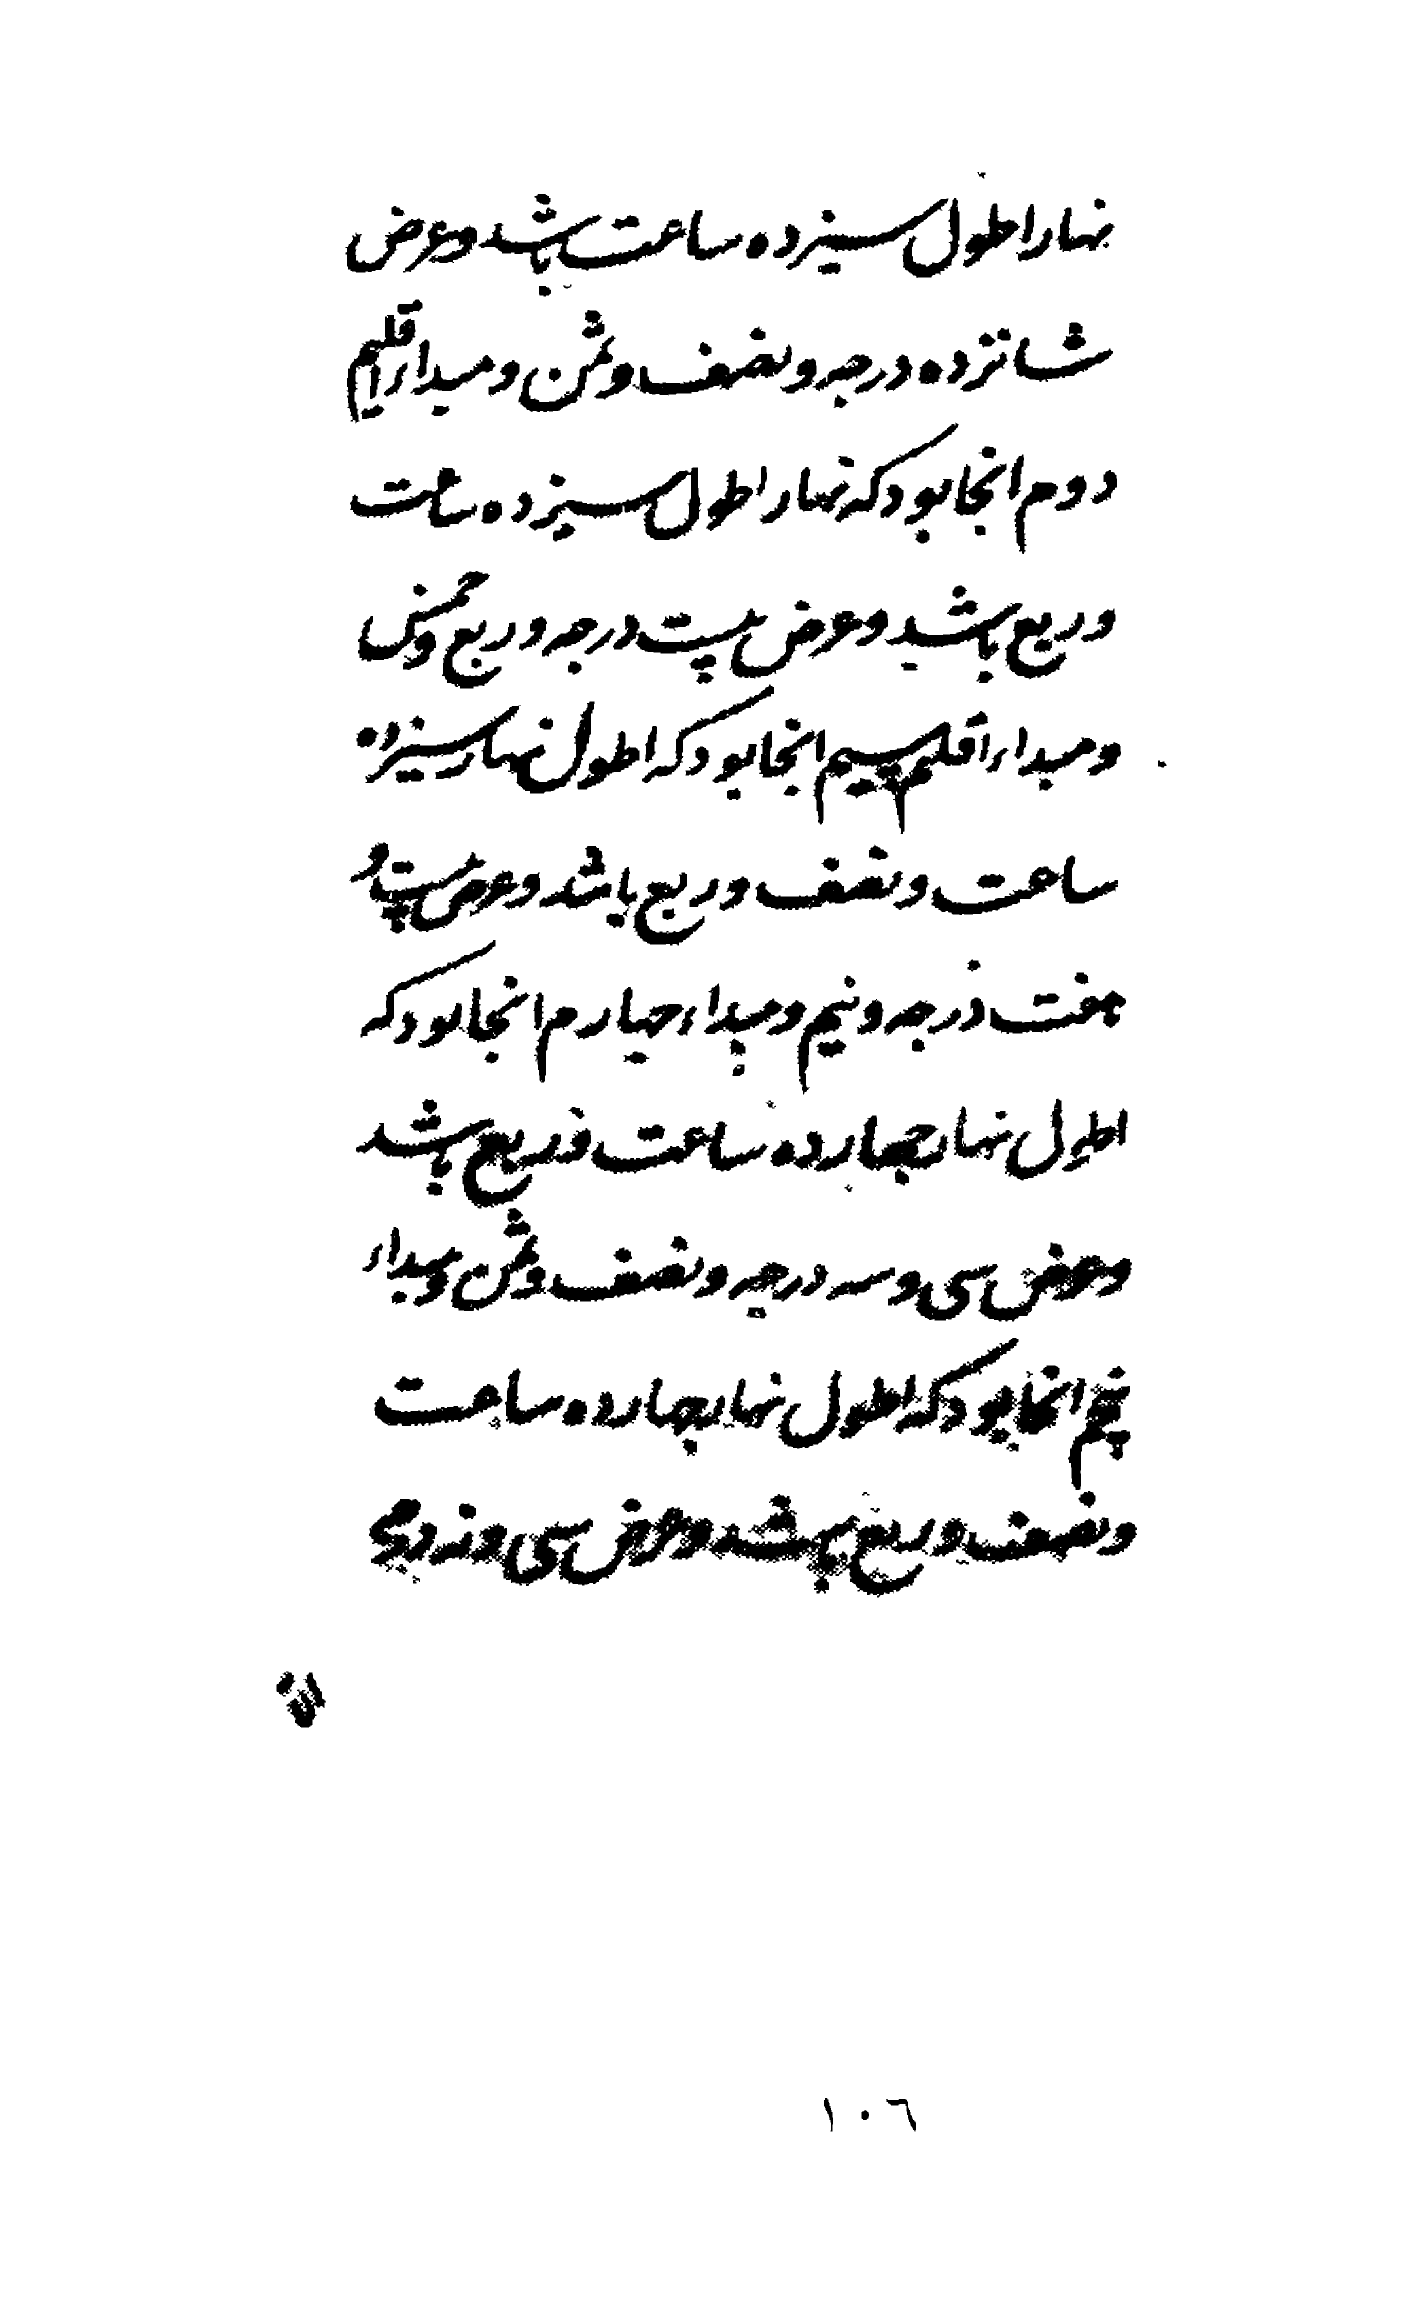 نهار اطول سیزده ساعت باشد و عرض
شانزده درجه و نصف و ثمن و مبداء اقلیم
دوم انجا بود که نهار اطول سیزده ساعت
و ربع باشد و عرض بیست درجه و ربع و خمس
و مبداء اقلیم سیم انجا بود که اطول نهار سیزده
ساعت و نصف و ربع باشد و عرض بیست و
هفت درجه و نیم و مبداء چهارم انجا بود که
اطول نهار چهارده ساعت و ربع باشد
و عرض سی و سه درجه و نصف و ثمن و مبداء
پنجم انجا بود که اطول نهار چهارده ساعت
و نصف و ربع باشد و عرض سی و نه درجه
١٠٦